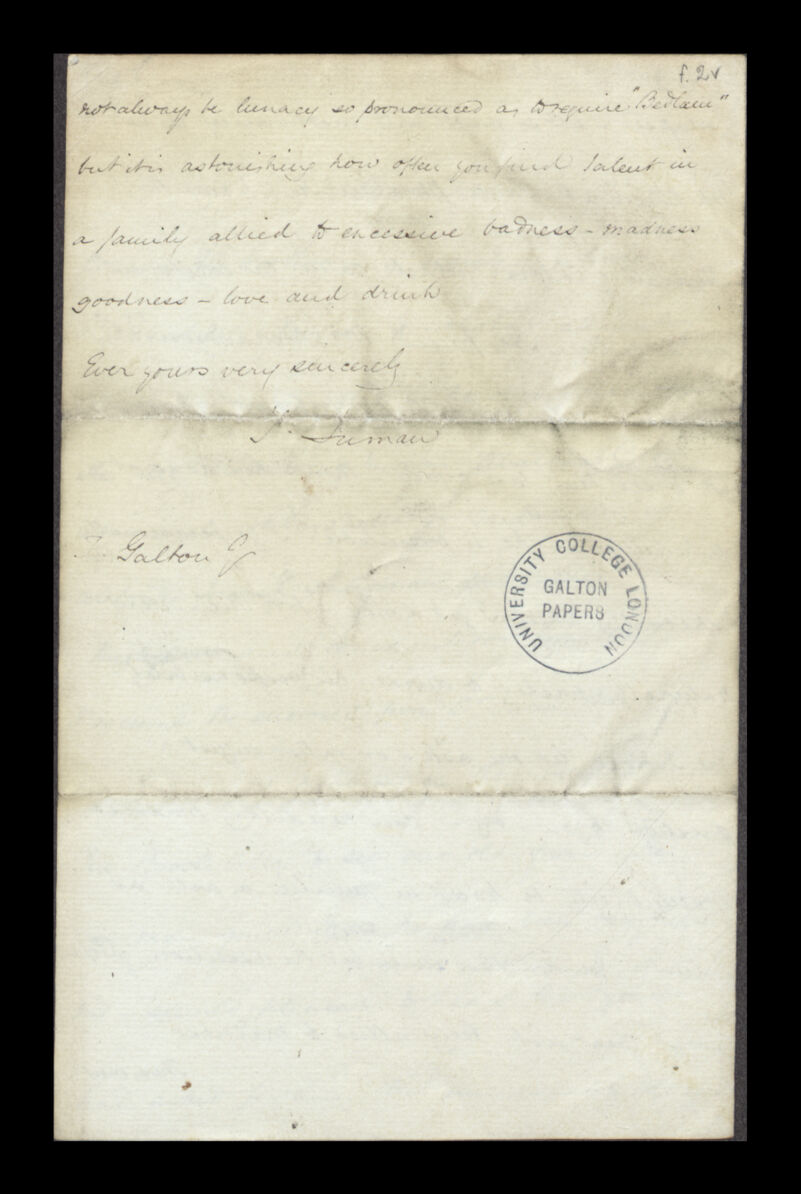 f. 2v
not always be lunacy so pronounced as to require "Bedlam"
but it is astonishing how often you find talent in
a family allied to excessive badness - madness
goodness - love and drink
Ever yours very sincerely
Galton
UNIVERSITY COLLEGE LONDON
GALTON
PAPERS